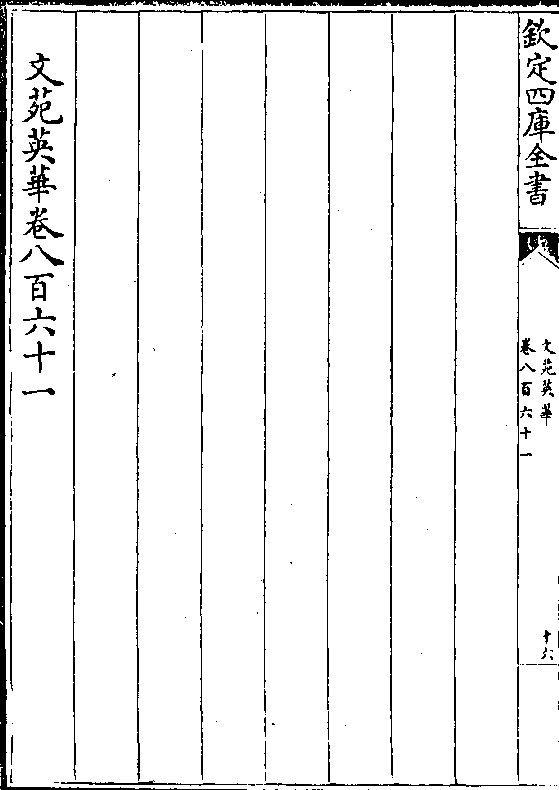 欽定四庫全書
文苑英華
卷八百六十一
十六
文苑英華卷八百六十一